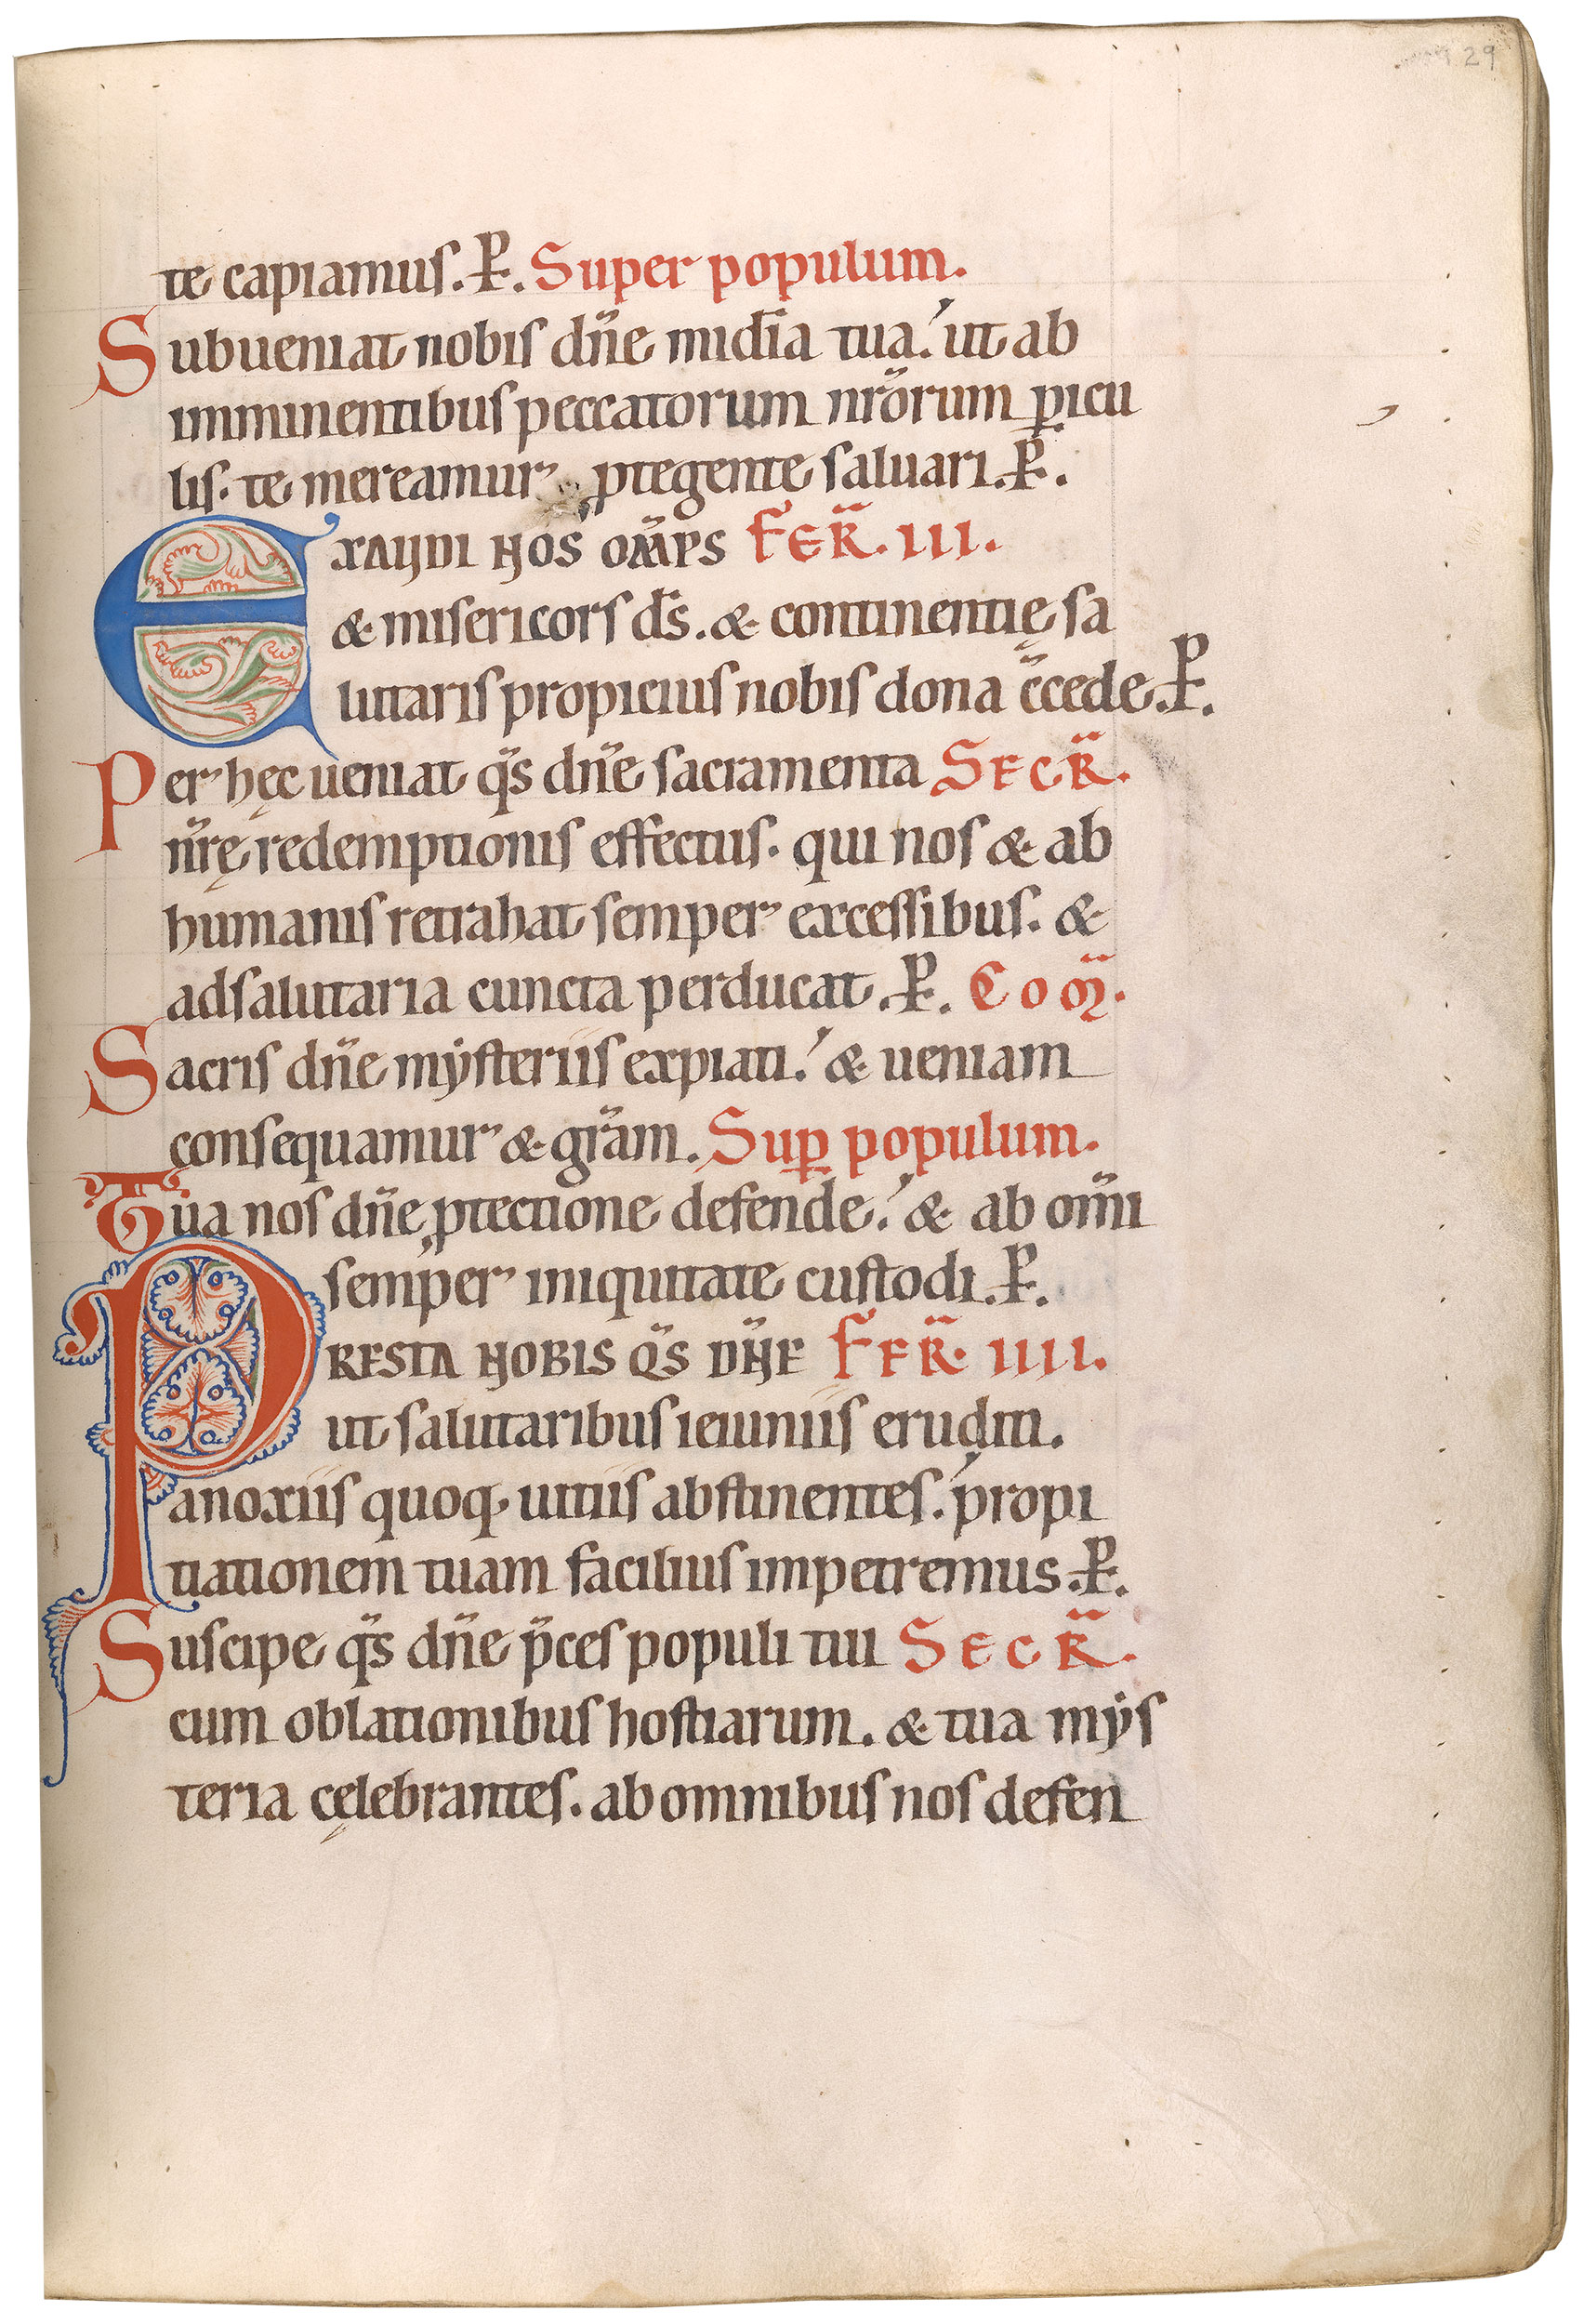 29
te capiamus. P. Super populum.
Subueniat nobis dn̄e mīdia tua. ut ab
imminentibus peccatorum nr̄orum ꝑicu
lis. te mereamur ꝓtegente saluari. P.
EXAUDI NOS OM̄PS FER̄. III.
& misericors ds̄. & continentię sa
lutaris propicius nobis dona c̄cede. P.
Per hęc ueniat qs̄ dn̄e sacramenta SECR̄.
nr̄ę redemptionis effectus. qui nos & ab
humanis retrahat semper excessibus. &
adsalutaria cuncta perducat. P. COM̄.
Sacris dn̄e mẏsteriis expiati. & ueniam
consequamur & grām. Suꝑ populum.
Tua nos dn̄e ꝓtectione defende. & ab om̄i
semper iniquitate custodi. P.
PRESTA NOBIS QS̄ DN̄E FER̄. IIII.
ut salutaribus ieiuniis eruditi.
anoxiis quoq. uitiis abstinentes. propi
tiationem tuam facilius impetremus. P.
Suscipe qs̄ dn̄e p̄ces populi tui SECR̄.
cum oblationibus hostiarum. & tua mẏs
teria cęlebrantes. ab omnibus nos defen